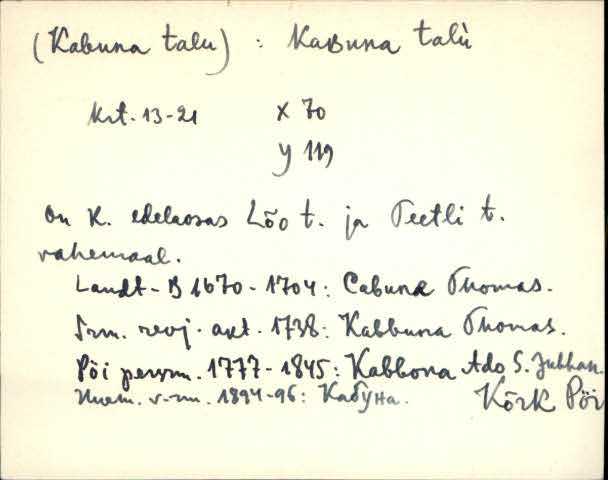 (Kabuna talu) : Kaʙuna talù
Krt. 13-21 X 70
y 119
On K. edelaosas Lõo t. ja Peetli t.
vahemaal.
Landt-B 1670-1704: Cabuna Thomas.
revj. akt. 1738: Kabbuna Thomas.
Pöi persnm. 1777-1845: Kabbona Ado S. Juhhan.
1894-96: Кабуна. Kõrk Pöi